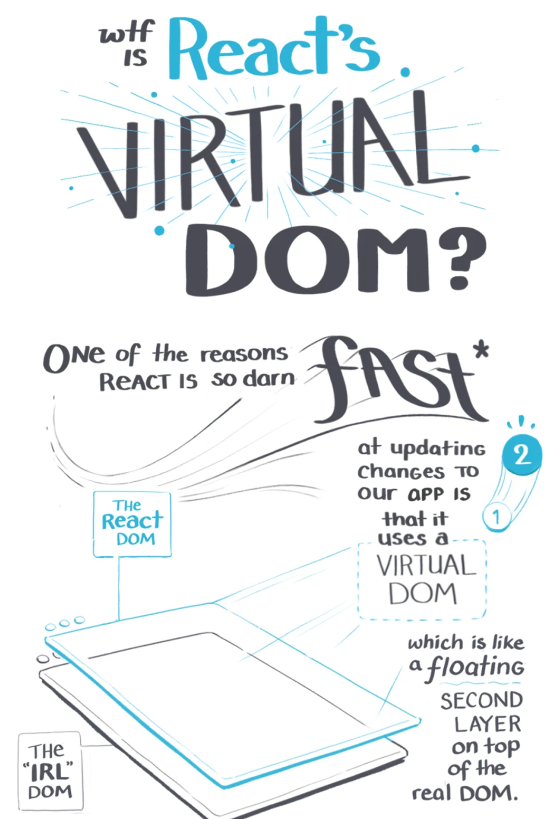 wtf
IS
React's
VIRTUAL
DOM?
ONE of the reasons
REACT IS so darn
fAST*
at updating
changes TO
our APP IS
that it
uses a
VIRTUAL
DOM
2
1
THE
React
DOM
which is like
a floating
SECOND
LAYER
on top
of the
real DOM.
THE
"IRL"
DOM